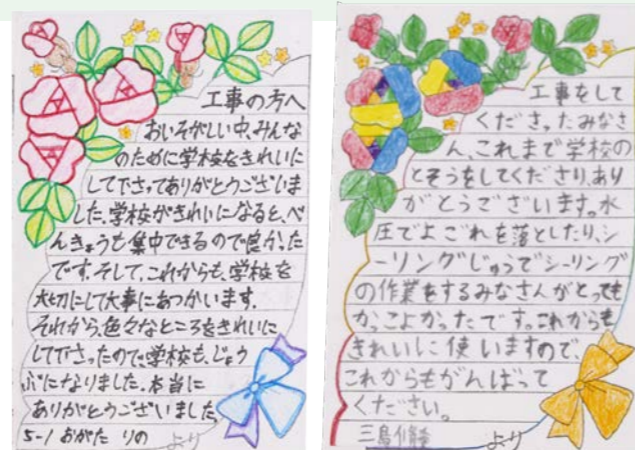 工事の方へ
おいそがしい中、みんな
のために学校をきれいに
して下さってありがとうございま
した。学校がきれいになると、べ
んきょうも集中できるので良かった
です。そして、これからも、学校を
大切にして大事にあつかいます。
それから、色々なところをきれいに
して下さったので、学校も、じょう
ぶになりました。本当に
ありがとうございました。
5-1 おがた りの
より
工事をして
くださったみなさ
ん、これまで学校の
とそうをしてくださり、あり
がとうございます。水
圧でよごれを落としたり、シ
ーリングじゅうでシーリング
の作業をするみなさんがとっても
かっこよかったです。これからも
きれいに使いますので、
これからもがんばって
ください。
三島
より